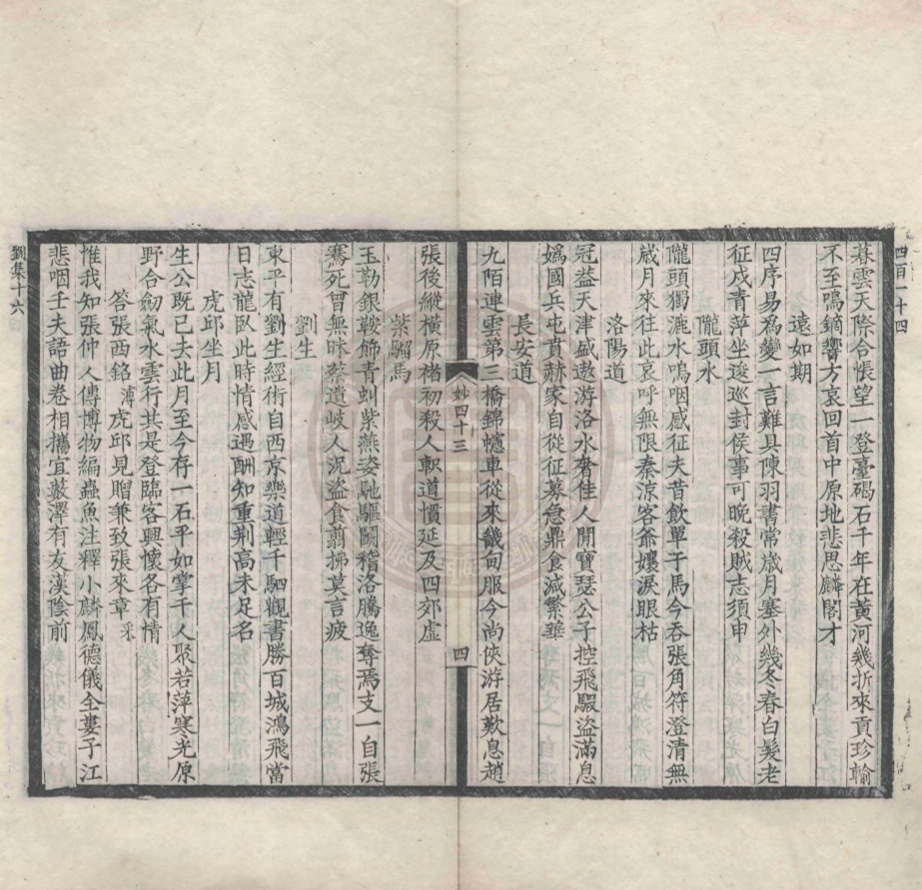 四百一十四
暮雲天際合悵望一登臺碣石千年在黃河幾折來貢珍輸
不至鳴鏑響方哀回首中原地悲思麟閣才
遠如期
四序易為變一言難具陳羽書常歲月塞外幾冬春白髮老
征戍青萍坐逡巡封侯事可晚殺賊志須申
隴頭水
隴頭獨漉水嗚咽感征夫昔飲單于馬今吞張角符澄清無
歲月來往此哀呼無限秦涼客爺孃淚眼枯
洛陽道
冠蓋天津盛遨游洛水奢佳人閒寶瑟公子控飛騢盜滿息
媯國兵屯賁赫家自從征募急鼎食減繁華
長安道
九陌連雲第三橋錦幰車從來畿甸服今尚俠游居歎息趙
妙四十三
四
張後縱橫原褚初殺人軹道慣延及四郊虛
紫騮馬
玉勒銀鞍飾青虯紫燕姿馳驅闘稽洛騰逸奪焉支一自張
騫死曾無昧蔡遺岐人況盜食翦拂莫言疲
劉生
東平有劉生經術自西京樂道輕千駟觀書勝百城鴻飛當
日志龍臥此時情感遇酬知重荊高未足名
虎邱坐月
生公既已去此月至今存一石平如掌千人聚若萍寒光原
野合劒氣水雲行其是登臨客興懷各有情
答張西銘溥虎邱見贈兼致張來章采
惟我知張仲人傳博物編蟲魚注釋小麟鳳德儀全婁子江
悲咽壬夫語曲卷相攜宜藪澤有友漢陰前
劉集十六